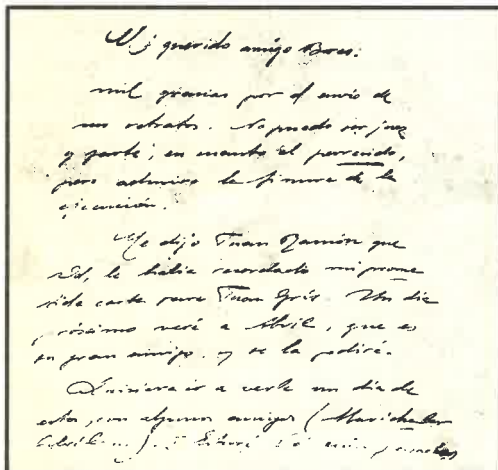 Mi querido amigo Bores:
mil gracias por el envío de
mis retratos. No puedo ser juez
y parte, en cuanto al parecido,
pero admiro la finura de la
ejecución.
Me dijo Juan Ramón que
Vd, le había recordado mi prome
tida carta para Juan Gris. Un día
próximo veré a Abril, que es
su gran amigo. y se la pediré.
Quisiera ir a verle un día de
estos, con algunos amigos (Marichalar